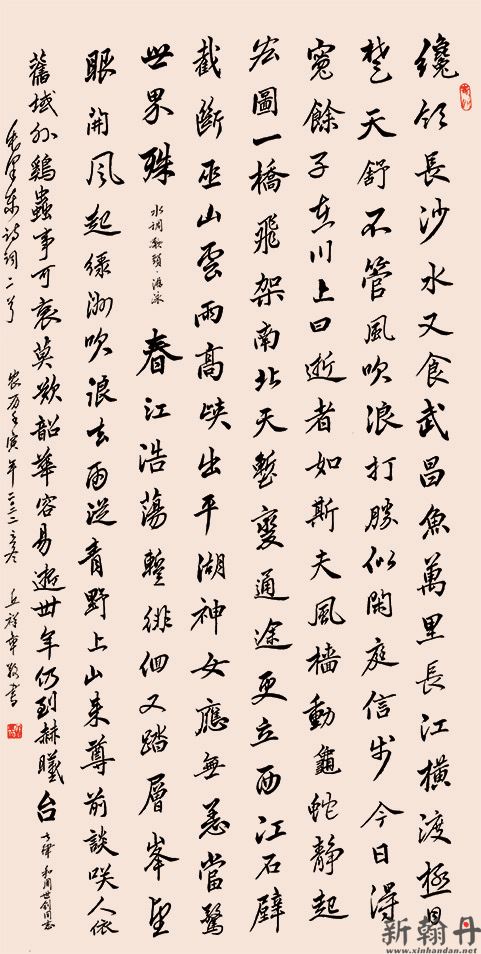 纔飲長沙水又食武昌魚萬里長江橫渡極目
楚天舒不管風吹浪打勝似閑庭信步今日得
寬餘子在川上曰逝者如斯夫風檣動龜蛇靜起
宏圖一橋飛架南北天塹變通途更立西江石壁
截斷巫山雲雨高峽出平湖神女應無恙當驚
世界殊 水調歌頭·游泳 春江浩蕩暫徘徊又踏層峯望
眼開風起綠洲吹浪去雨從青野上山來尊前談咲人依
舊域外鷄蟲事可哀莫歎韶華容易逝卅年仍到赫曦台 七律 和周世釗同志
毛澤東詩詞二首 農历壬寅年
新翰丹
www.xinhandan.net